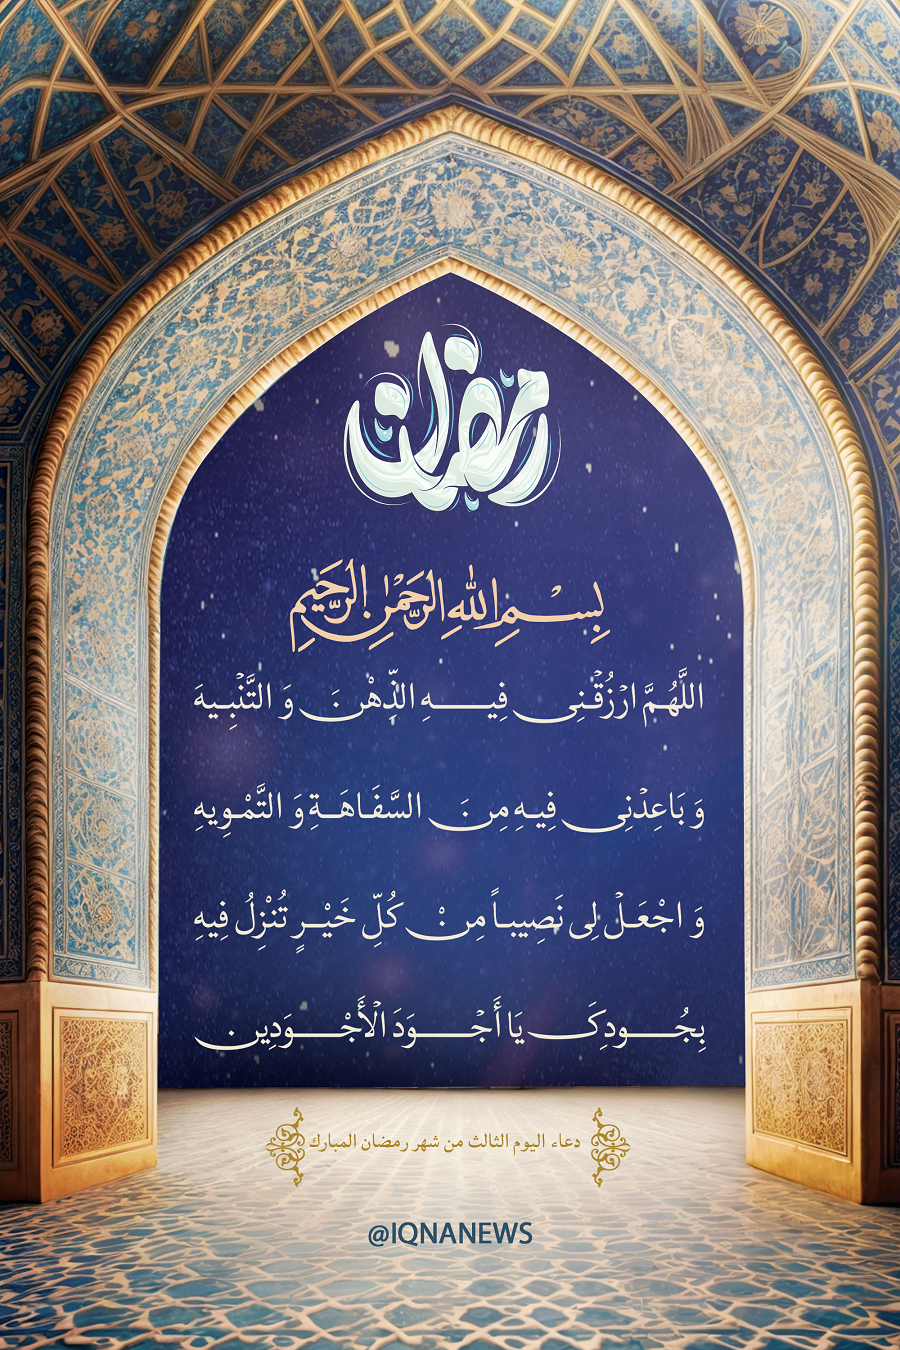 رمضان
بِسْمِ اللهِ الرَّحَمْنِ الرَّحَيِمِ
اللَّهُمَّ ارْزُقْنِى فِيهِ الذِّهْنَ وَ التَّنْبِيهَ
وَ بَاعِدْنِى فِيهِ مِنَ السَّفَاهَةِ وَ التَّمْوِيهِ
وَ اجْعَلْ لِى نَصِيباً مِنْ كُلِّ خَيْرٍ تُنْزِلُ فِيهِ
بِجُودِكَ يَا أَجْوَدَ الْأَجْوَدِين
دعاء اليوم الثالث من شهر رمضان المبارك
@IQNANEWS